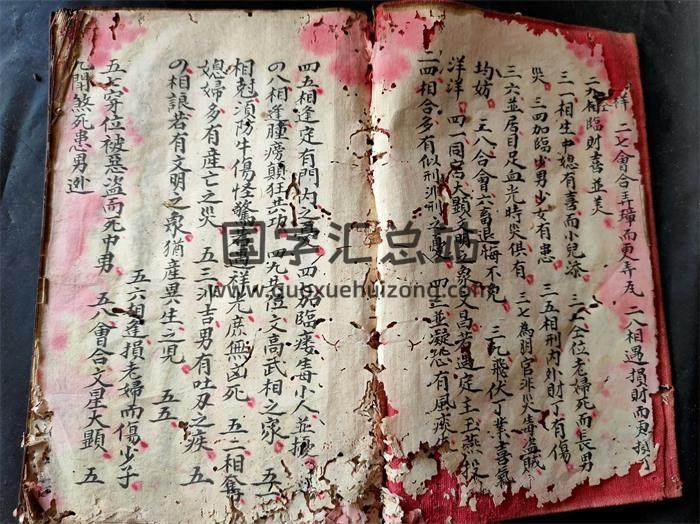 祥 二七會合弄璋而更弄瓦 二八相遇損財而更損丁
二九相臨財喜並美
三一相生中媳有喜而小兒添
災 三四加臨少男少女有患 三五相刑內外財丁有傷
三六並居目足血光時災俱有 三七為羽宮非災毒盜賊
均妨 三八合會六畜退悔不免 三九飛伏丁業喜氣
洋洋 四一同宮大顯文 象人昌若遇定主玉燕
二四相合多有似刑非刑之 四三並凝恐有風疾
四五相逢定有門內之 四 加臨瘘毒小人並擾
の八相逢腫痨顛狂共攻 四九 文高武相之家 五一
相尅須防牛傷怪驚若 祥光庶無凶死 五二相奪
媳婦多有産亡之災 五三 吉男有吐刃之疾 五
の相誏若有文明之衆猶産異生之兒 五五
五六相逢損老婦而傷少子
五七穿位被惡盜而死中男 五八會合文星大顯 五
九開煞死患男迯
国学汇总站
www.guoxuehuizong.com